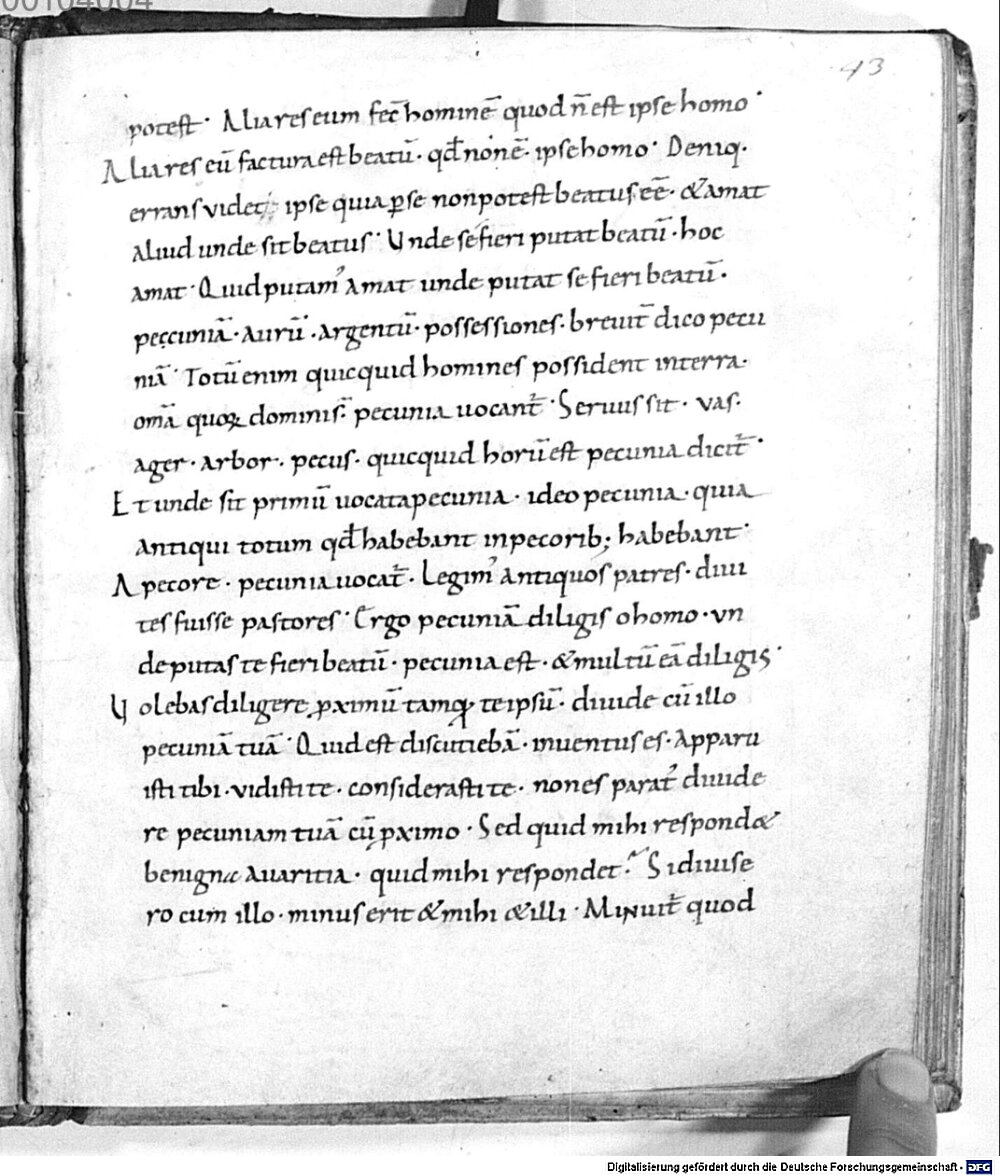 00104004
43
potest· Alia res eum fec̄ hominē quod n̄ est ipse homo·
Alia res eū factura est beatū· qđ non ē· ipse homo· Deniq·
errans videt· ipse quia ꝑ se non potest beatus eē· & amat
aliud unde sit beatus· Unde se fieri putat beatū· hoc
amat· Quid putamꝰ amat unde putat se fieri beatū·
peccuniā· aurū· argentū· possessiones· breuit̄ dico pecu
niā· Totū enim quicquid homines possident in terra·
om̄a quoꝝ domini s̄· pecunia uocant̄· Seruus sit· vas·
ager· arbor· pecus· quicquid horū est pecunia dicit̄·
Et unde sit primū uocata pecunia· ideo pecunia· quia
antiqui totum qđ habebant in pecorib; habebant·
A pecore· pecunia uocat̄· Legimꝰ antiquos patres· diui
tes fuisse pastores· Ergo pecuniā diligis o homo· un
de putas te fieri beatū· pecunia est· & multū eā diligis·
Uolebas diligere ꝓximū tamq̄ te ipsū· diuide cū illo
pecuniā tuā· Quid est discutiebā· inuentus es· Apparu
isti tibi· vidisti te· considerasti te· non es paratꝰ diuide
re pecuniam tuā cū ꝓximo· Sed quid mihi respond&
benigna auaritia· quid mihi respondet· Si diuise
ro cum illo· minus erit & mihi & illi· Minuit̄ quod
Digitalisierung gefördert durch die Deutsche Forschungsgemeinschaft · DFG